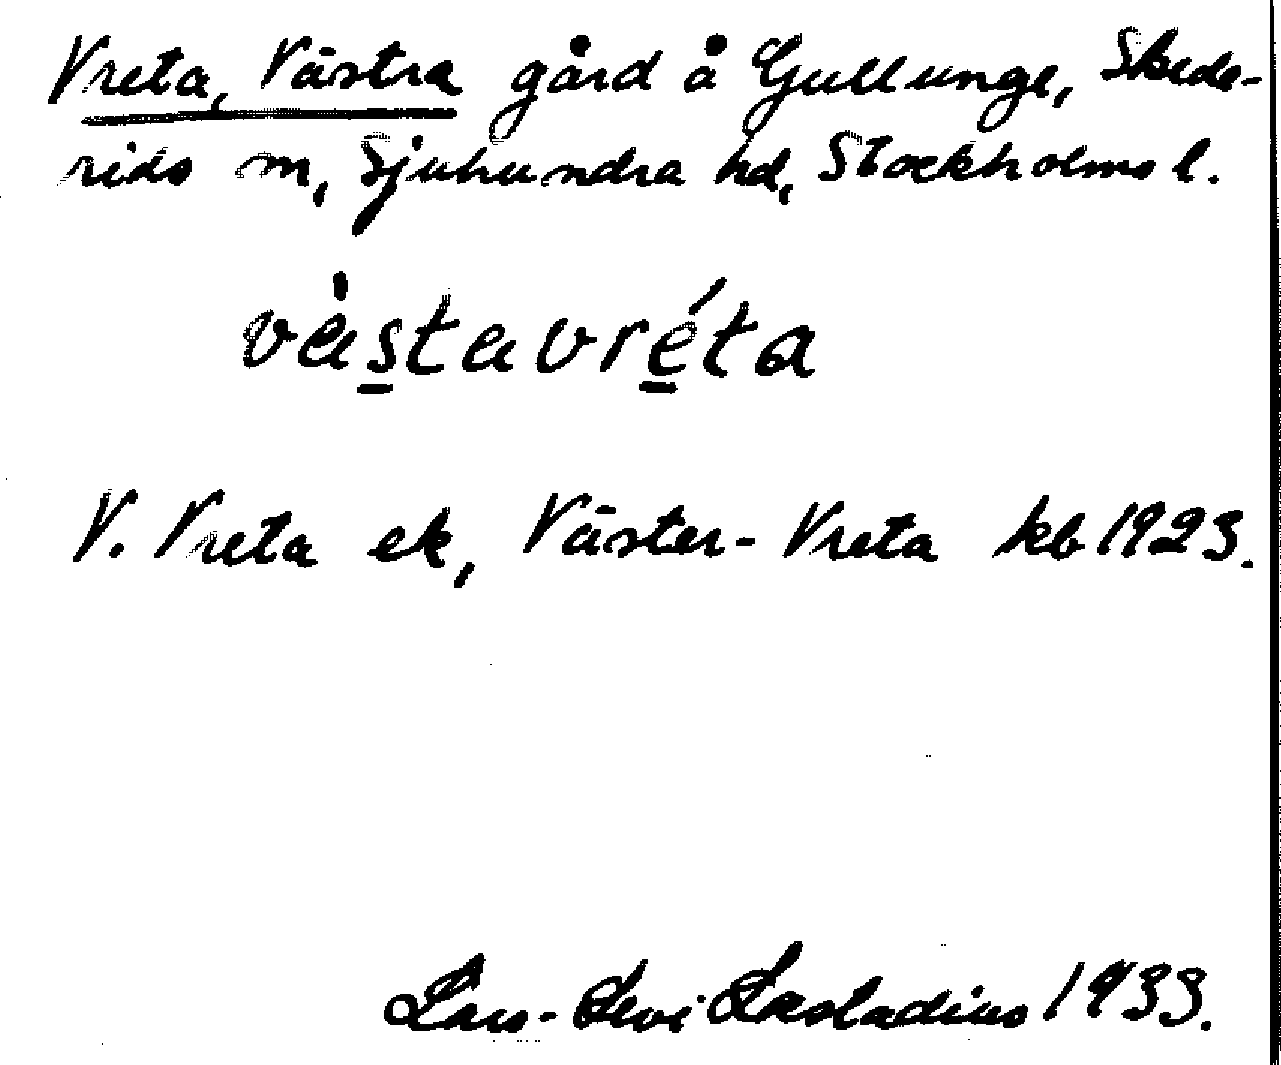 Vreta, Västra gård å Gullunge, Skede-
rids sn, Sjuhundra hd, Stockholms l.
vàs̲tavré̲ta
V. Vreta ek, Väster-Vreta kb 1923.
Lars-Levi Læstadius 1933.